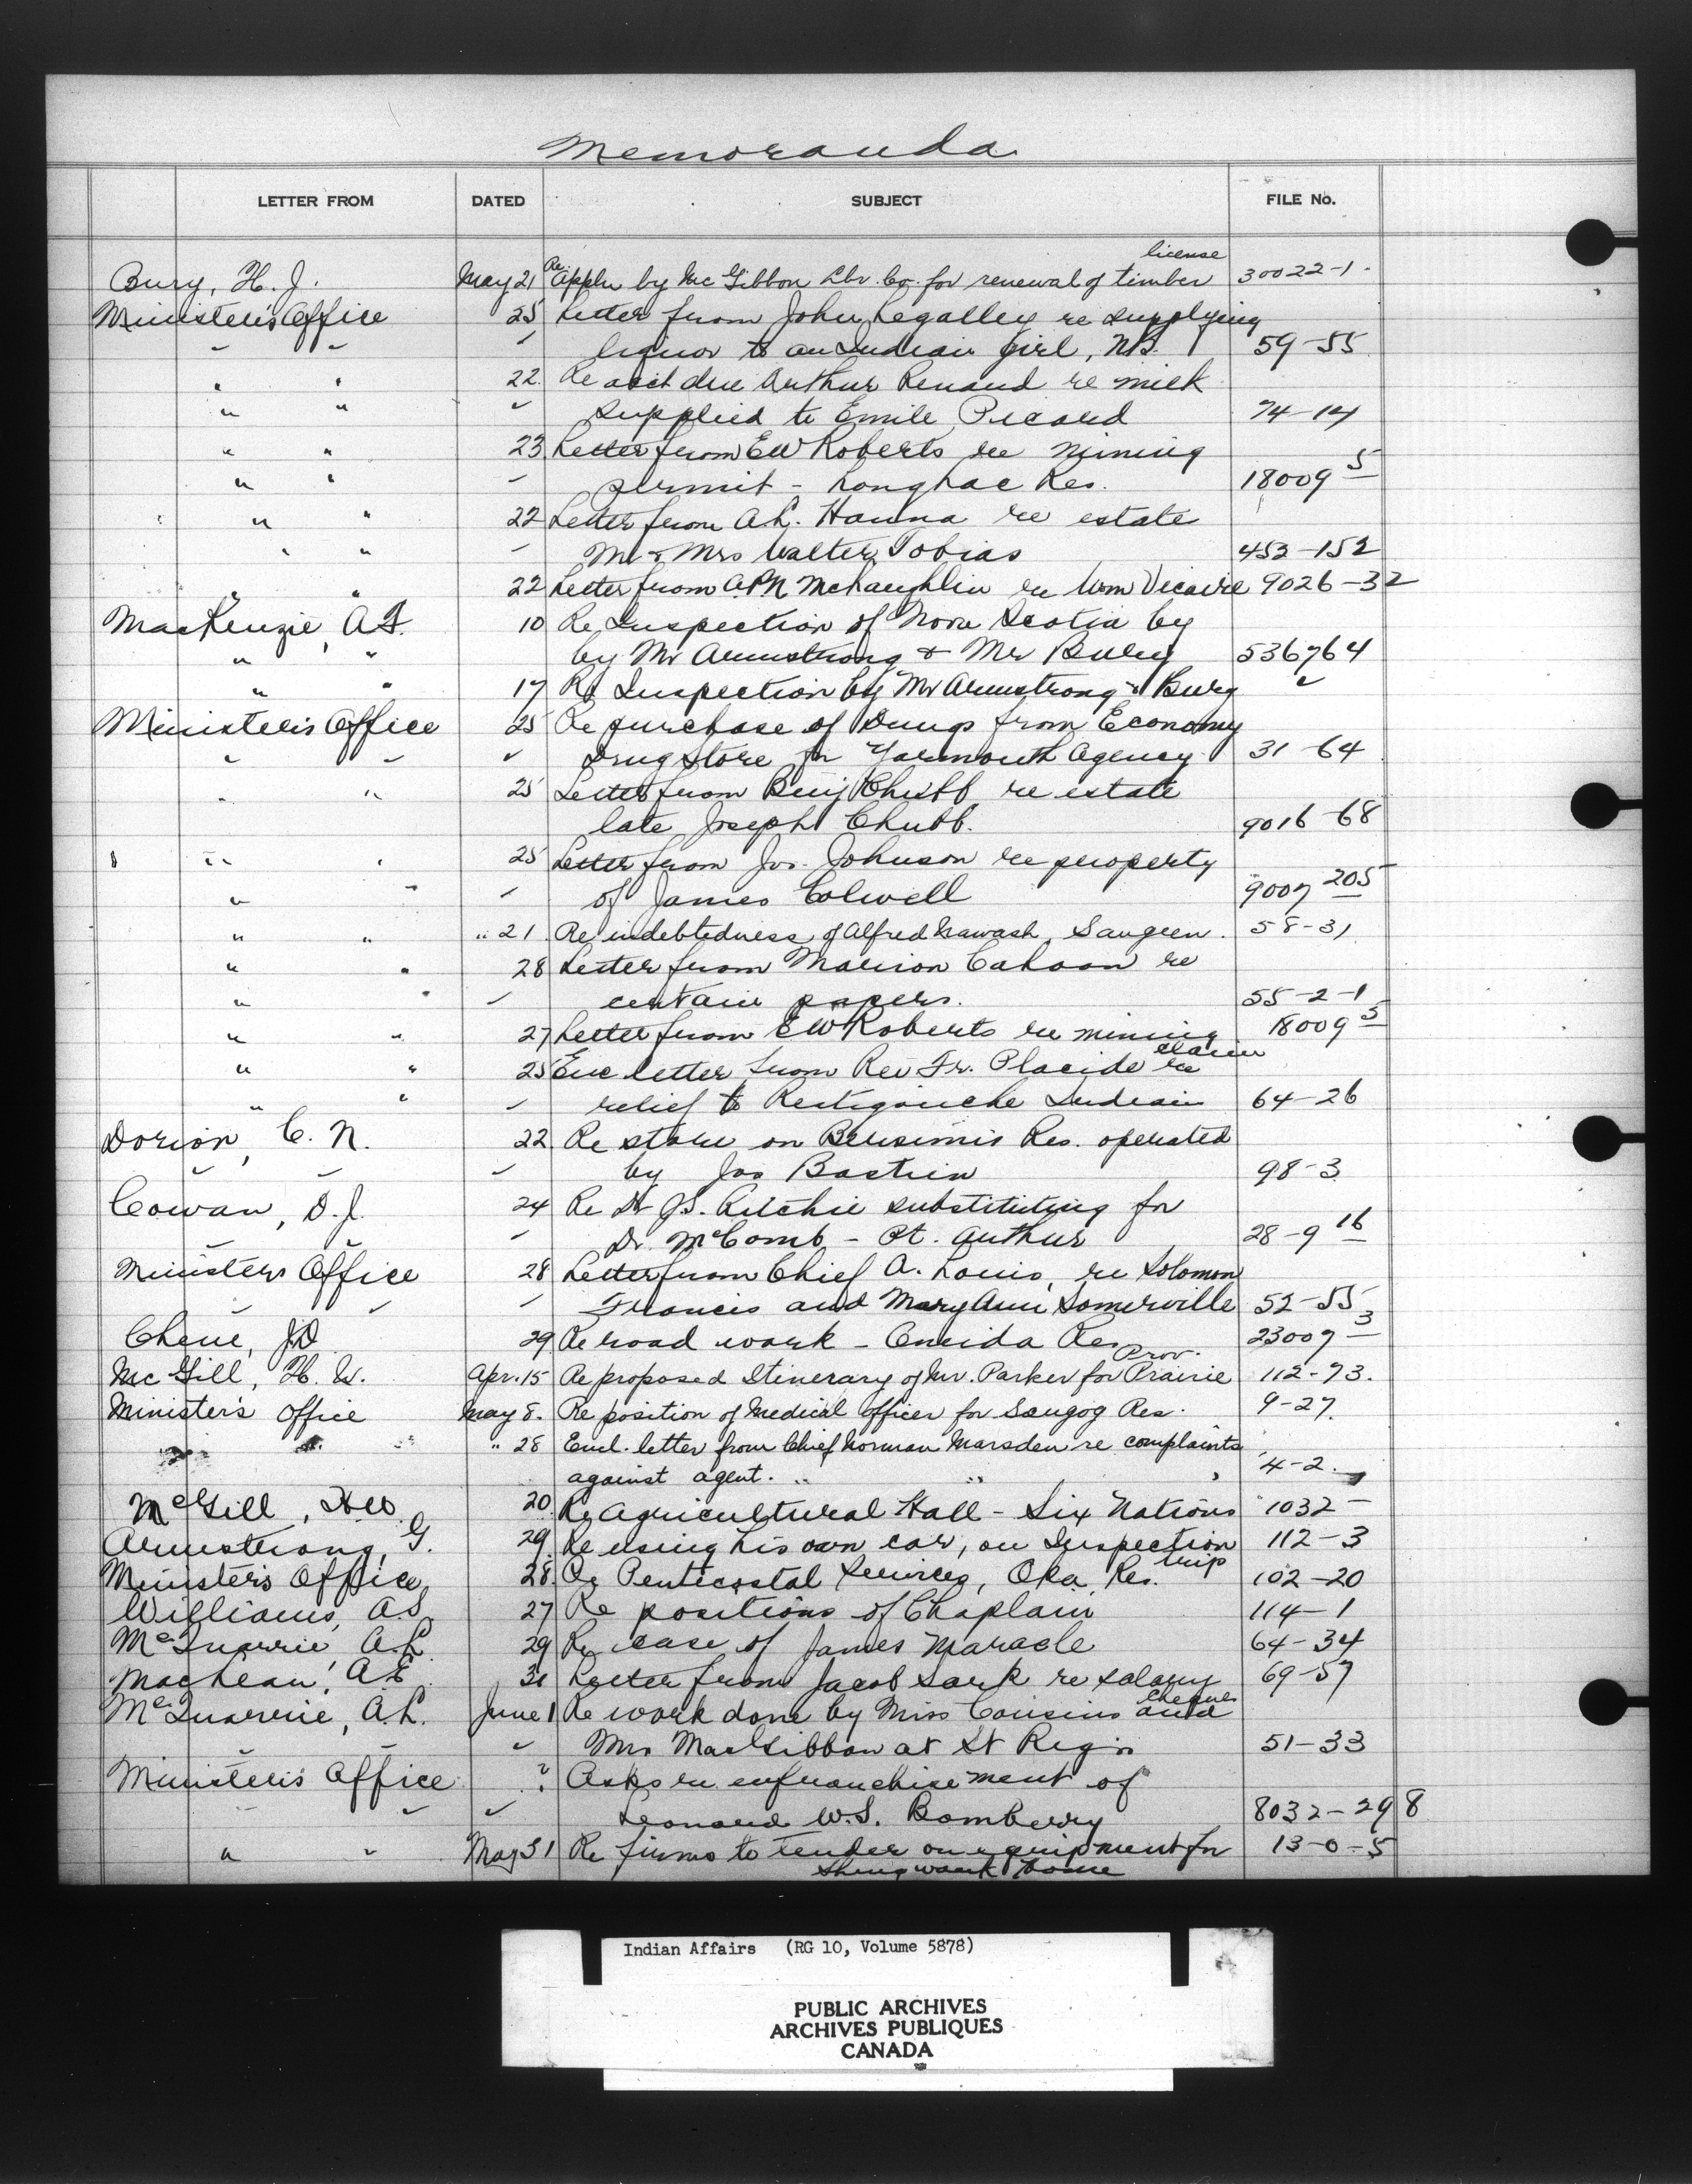 Memoranda
LETTER FROM DATED SUBJECT FILE No.
license
Bury, H. J. May 21 Re Appln by McGibbon Lbr. Co. for renewal of timber 30022-1
Minister's Office 25 Letter from John Legalley re supplying
" " " liquor to an Indian girl, NB. 59-55
" " 22 Re acct due Arthur Renaud re milk
" " " supplied to Emile Picard 74-14
" " 23 Letter from EW Roberts re mining
" " " permit - Longlac Res. 18009 5
" " 22 Letter from A.L. Hanna re estate
" " " Mr & Mrs Walter Tobias 453-152
" " 22 Letter from A.P.N McLaughlin re Wm Vicaire 9026-32
MacKenzie, A.F. 10 Re Inspection of Nova Scotia by
" " by Mr Armstrong & Mr Bury 536764
" " 17 Re Inspection by Mr Armstrong & Bury "
Minister's Office 25 Re purchase of Drugs from Economy
" " " Drug Store for Yarmouth Agency 31-64
" " 25 Letter from Benj Chubb re estate
late Joseph Chubb. 9016-68
" " 25 Letter from Jos. Johnson re property
" " " of James Colwell 9007 205
" " " 21 Re indebtedness of Alfred Nawash, Saugeen. 58-31
" " 28 Letter from Marion Cahoon re
" " " certain papers. 55-2-1
" " 27 Letter from EW Roberts re mining 18009 5
claim
" " 25 Enc letter from Rev Fr. Placide re
" " " relief to Restigouche Indian 64-26
Dorion, C. N. 22 Re store on Bersimis Res. operated
" " " by Jos Bastien 98-3
Cowan, D.J. 24 Re Dr J.S. Ritchie substituting for
" " " Dr. McComb - Pt. Arthur 28-9 16
Ministers Office 28 Letter from Chief A. Louis, re Solomon
" " " Francis and Mary Ann Somerville 52-55
Chene, JD 29 Re road work - Oneida Res 23007 3
Prov.
McGill, H. W. Apr. 15 Re proposed Itinerary of Mr. Parker for Prairie 112-73.
Minister's Office May 8. Re position of Medical officer for Scugog Res. 9-27.
" " " 28 Encl. letter from Chief Norman Marsden re complaints
against agent. " " 4-2.
McGill, HW. 20 Re Agricultural Hall - Six Nations 1032-
Armstrong, G. 29 Re using his own car, on Inspection 112-3
trip
Minister's Office 28 Re Pentecostal Services, Oka Res. 102-20
Williams, A.S. 27 Re positions of Chaplain 114-1
McQuarrie A.L 29 Re case of James Maracle 64-34
MacLean, A.E 31 Letter from Jacob Sark re salary 69-57
cheques
McQuarrie, A.L. June 1 Re work done by Miss Cousins and
" " " Mrs MacGibbon at St Regis 51-33
Minister's Office " Asks re enfranchisement of
" " " Leonard W.S. Bomberry 8032-298
" " May 31 Re firms to tender on equipment for 13-0-5
Shingwauk Home
Indian Affairs (RG 10, Volume 5878)
PUBLIC ARCHIVES
ARCHIVES PUBLIQUES
CANADA